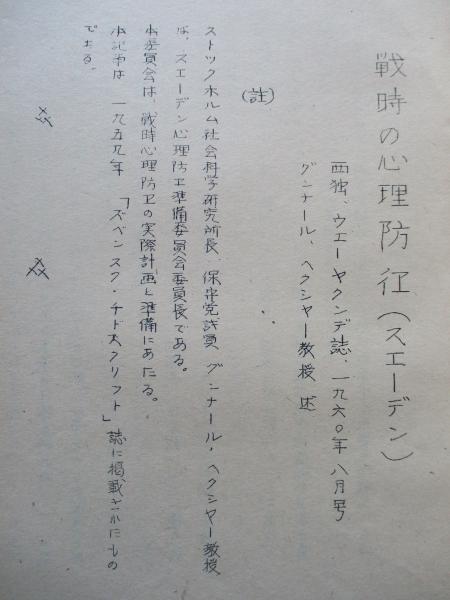 戦時の心理防衛（スエーデン）
西独、ウエーヤクンデ誌、一九六〇年八月号
グンナール、ヘクシャー教授 述
（註）
ストックホルム社会科学研究所長、保守党議員 グンナール・ヘクシャー教授
は、スエーデン心理防卫準備委員会委員長である。
本委員会は、戦時心理防卫の実際計画と準備にあたる。
本記事は 一九五九年 「ズベンスク・チドスクリフト」誌に掲載されたもの
である。